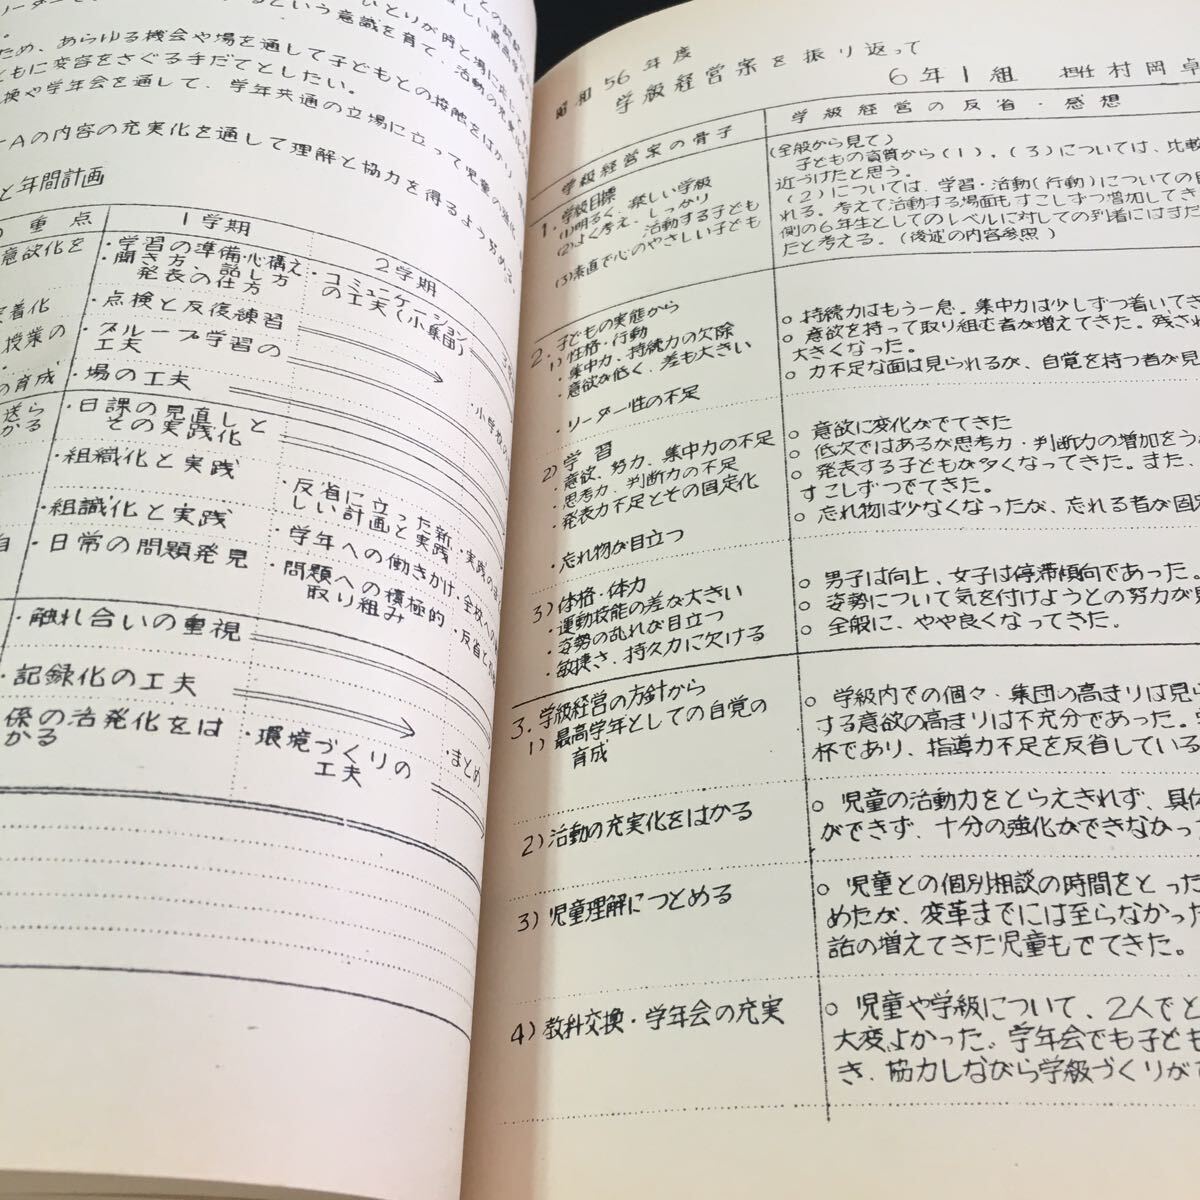 るという意識を育て、活動の充実
ひとりが時と場に応じ
ため、あらゆる機会や場を通して子どもとの接触をはかり
ともに変容をさぐる手だてとしたい。
換や学年会を通して、学年共通の立場に立って児童の
Aの内容の充実化を通して理解と協力を得るよう努める
と年間計画
重点
1学期
2学期
意欲化を
・学習の準備・心構え
・聞き方・話し方
発表の仕方
・コミュニケーション
の工夫(小集団)
着化
・点検と反復練習
授業の
・グループ学習の
工夫
の育成
・場の工夫
送ら
かる
・日課の見直しと
その実践化
・組織化と実践
・反省に立った新
しい計画と実践
・組識化と実践
・学年への働きかけ
・日常の問題発見
・問題への積極的
取り組み
・触れ合いの重視
・記録化の工夫
係の活発化をは
かる
・環境づくりの
工夫
・まとめ
昭和56年度
学級経営案を振り返って
6年1組 担任 村岡卓
学級経営案の骨子
学級経営の反省・感想
1.学級目標
(1)明るく、楽しい学級
(2)よく考え、しっかり
活動する子ども
(3)素直で心のやさしい子ども
(全般から見て)
子どもの資質から(1),(3)については、比較
近づけたと思う。
(2)については、学習・活動(行動)についての
れる。考えて活動する場面もすこしずつ増加してき
側の6年生としてのレベルに対しての到着にはまだ
たと考える。(後述の内容参照)
2.子どもの実態から
1)性格・行動
・集中力、持続力の欠除
・意欲が低く、差も大きい
・リーダー性の不足
○持続力はもう一息。集中力は少しずつ着いてき
○意欲を持って取り組む者が増えてきた。残され
大きくなった。
○力不足な面は見られるが、自覚を持つ者が見
2)学習
・意欲、努力、集中力の不足
・思考力、判断力の不足
・発表力不足とその固定化
・忘れ物が目立つ
○意欲に変化がでてきた
○低次ではあるが思考力・判断力の増加をう
○発表する子どもが多くなってきた。また、
すこしずつでてきた。
○忘れ物は少なくなったが、忘れる者が固定
3)体格・体力
・運動技能の差が大きい
・姿勢の乱れが目立つ
・敏捷さ、持久力に欠ける
○男子は向上、女子は停滞傾向であった。
○姿勢について気を付けようとの努力が見
○全般に、やや良くなってきた。
3.学級経営の方針から
1)最高学年としての自覚の
育成
○学級内での個々・集団の高まりは見ら
する意欲の高まりは不充分であった。
杯であり、指導力不足を反省している
2)活動の充実化をはかる
○児童の活動力をとらえきれず、具体
ができず、十分の強化ができなかっ
3)児童理解につとめる
○児童との個別相談の時間をとった
めたが、変革までには至らなかった
話の増えてきた児童もでてきた。
4)教科交換・学年会の充実
○児童や学級について、2人でと
大変よかった。学年会でも子ども
き、協力しながら学級づくりが